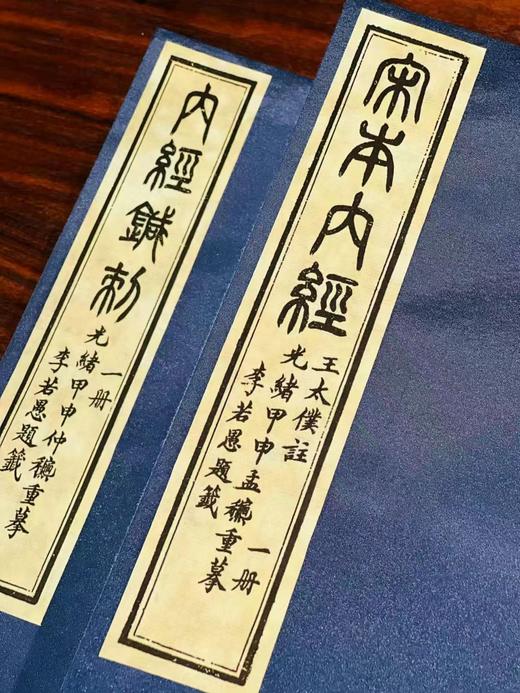 宋本內經
王太僕註 一册
光緒甲申孟龝重摹
李若愚題籤
內經鍼刺
一册
光緒甲申仲龝重摹
李若愚題籤